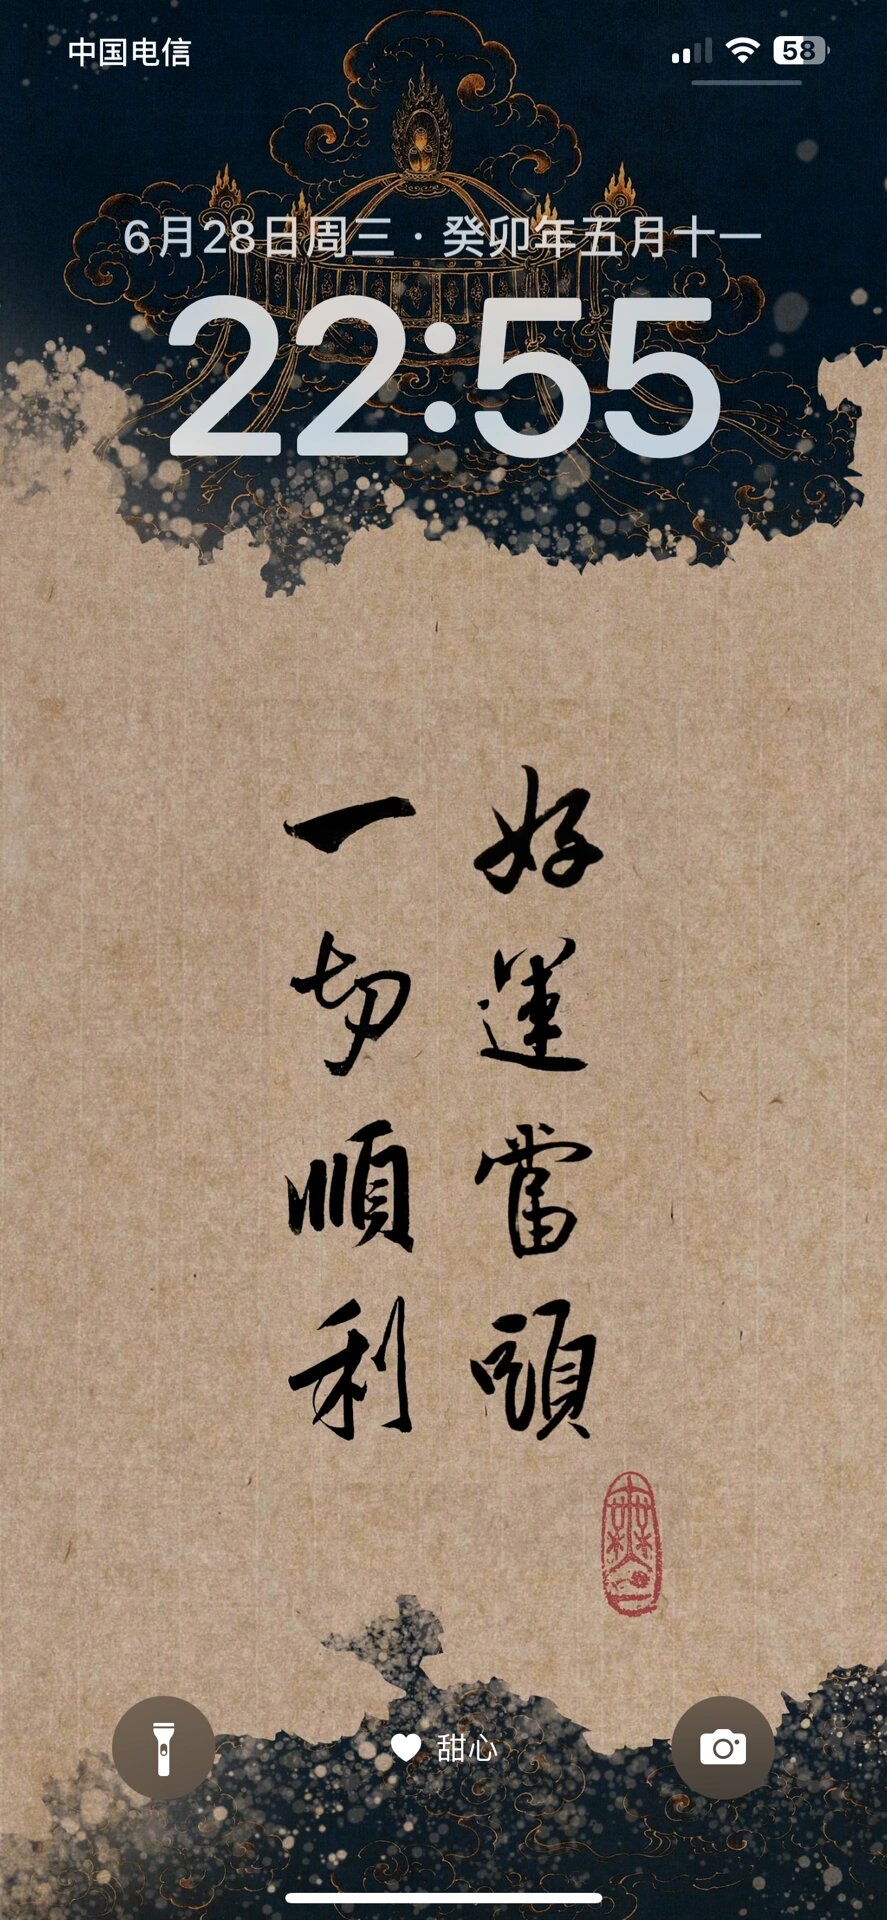 中国电信
58
6月28日周三 · 癸卯年五月十一
22:55
好運當頭
一切順利
甜心